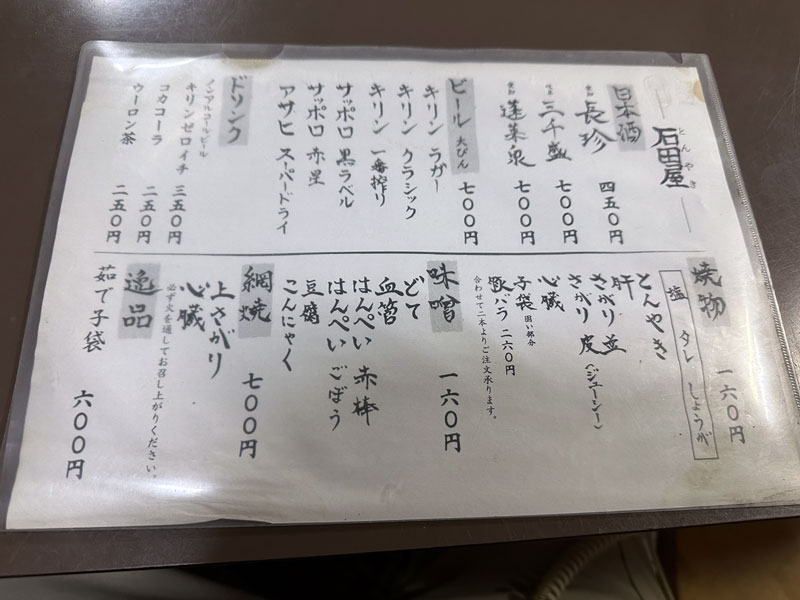 石田屋
とんやき
日本酒
愛知 長珍 四五〇円
岐阜 三千盛 七〇〇円
愛知 蓬莱泉 七〇〇円
ビール 大びん 七〇〇円
キリン ラガー
キリン クラシック
キリン 一番搾り
サッポロ 黒ラベル
サッポロ 赤星
アサヒ スーパードライ
ドリンク
ノンアルコールビール
キリンゼロイチ 三五〇円
コカコーラ 二五〇円
ウーロン茶 二五〇円
焼物 一六〇円
塩 タレ しょうが
とんやき
肝
さがり 並
さがり 皮(ジューシー)
心臓
子袋 固い部分
豚バラ 二六〇円
合わせて二本よりご注文承ります。
味噌 一六〇円
どて
血管
はんぺい 赤棒
はんぺい ごぼう
豆腐
こんにゃく
網焼 七〇〇円
上さがり
心臓
必ず火を通してお召し上がりください。
逸品
茹で子袋 六〇〇円